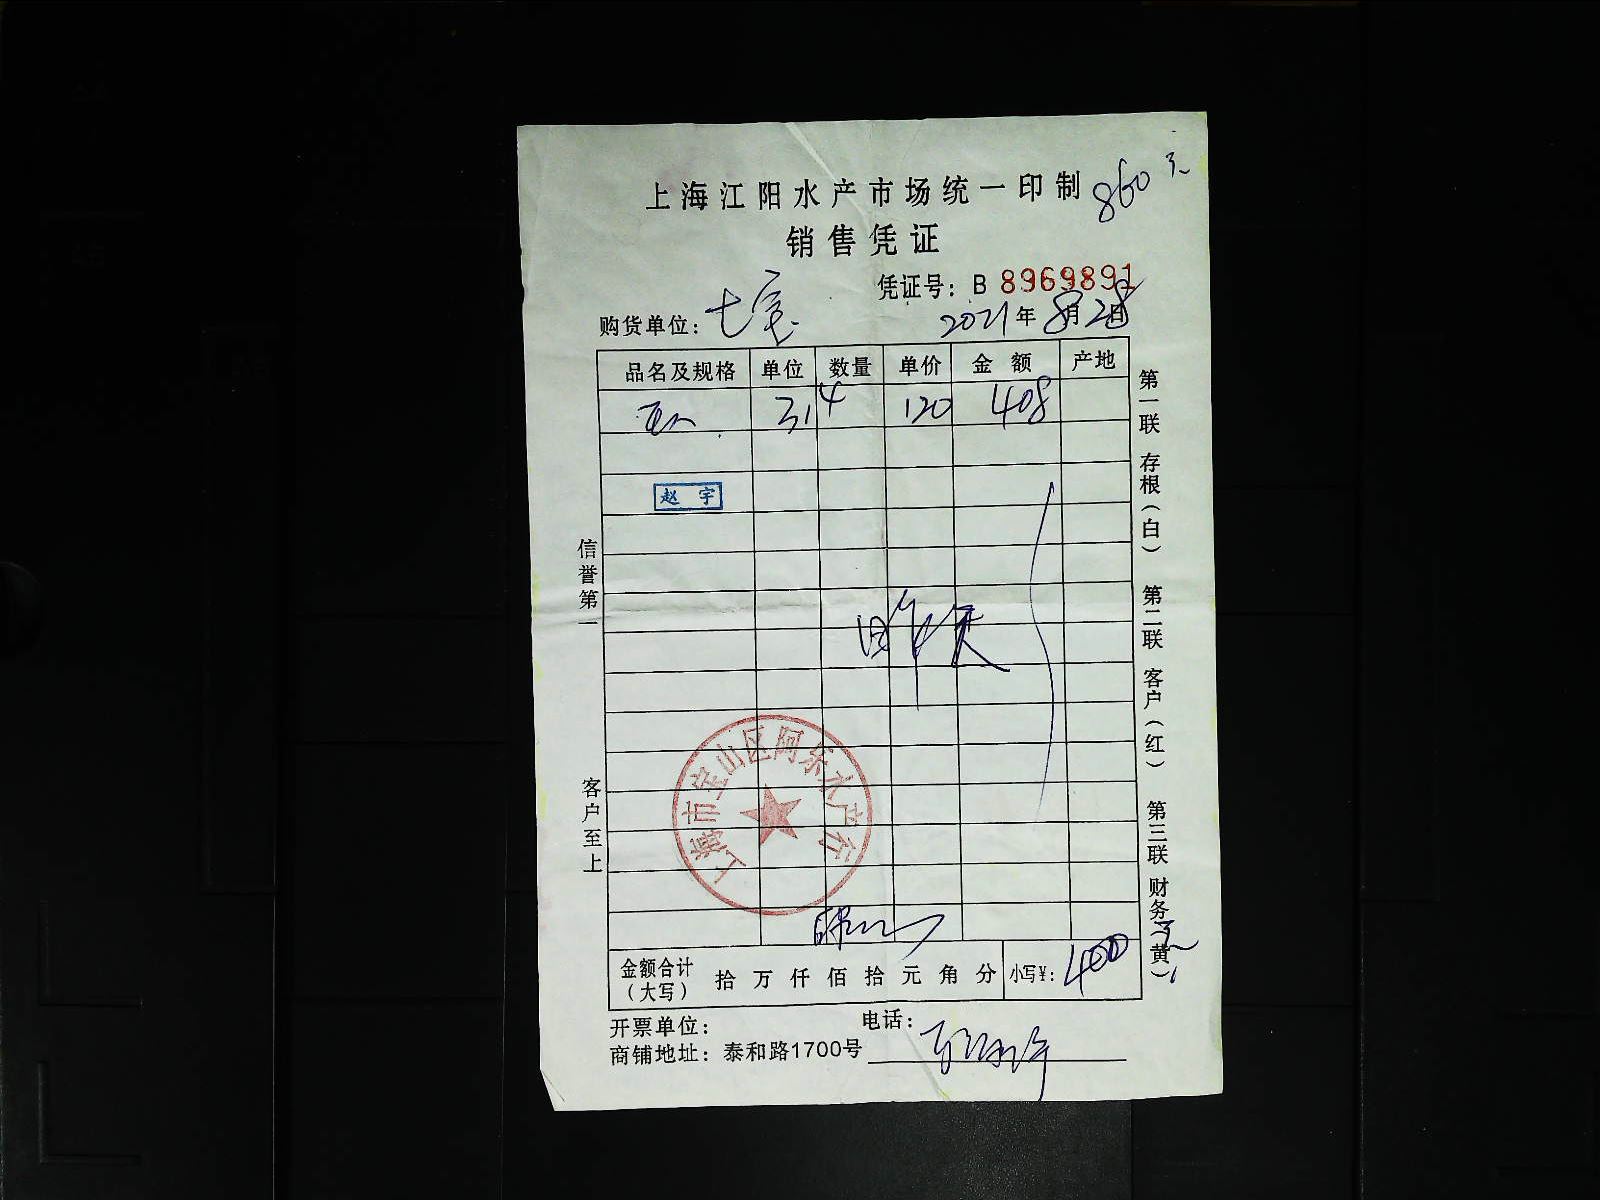 上海江阳水产市场统一印制
860元
销售凭证
凭证号：B 8969891
购货单位：七宝
2021年8月28日
品名及规格 单位 数量 单价 金额 产地
314 120 408
赵宇
昨天
上海市宝山区阿乐水产行
金额合计（大写） 拾万仟佰拾元角分 小写¥：400元
开票单位： 电话：
商铺地址：泰和路1700号
信誉第一
客户至上
第一联 存根（白） 第二联 客户（红） 第三联 财务（黄）